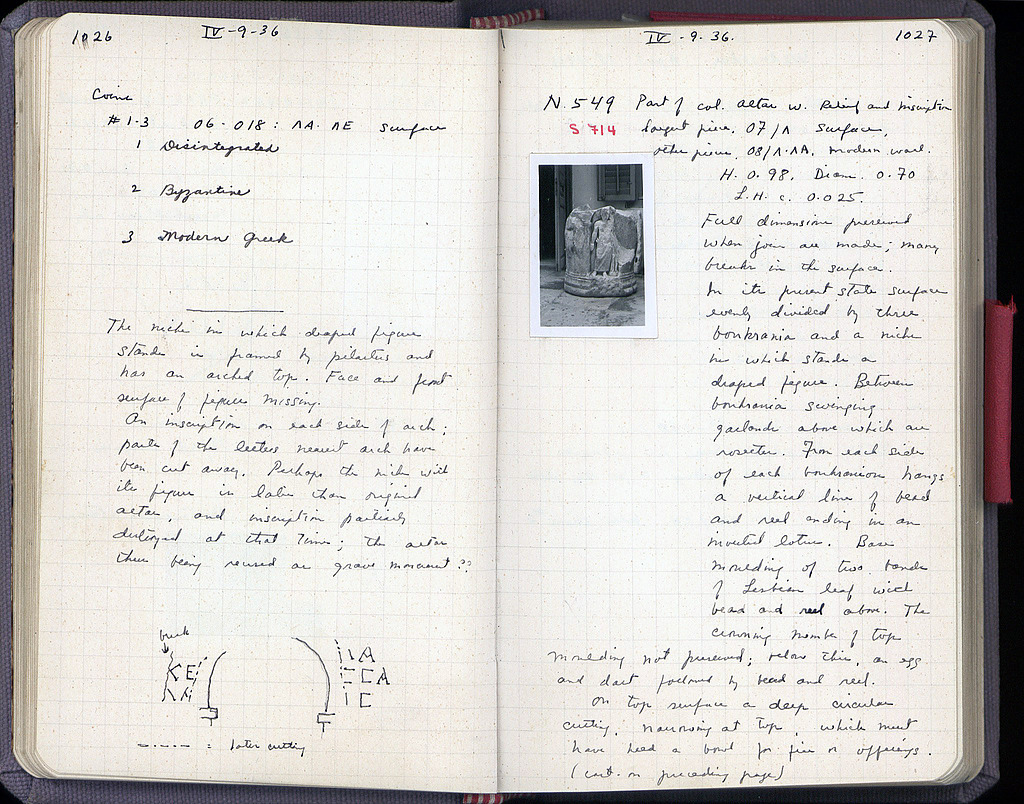 1026
IV-9-36
Coins
#1-3 06-018: ΛA-ΛE surface
1 Disintegrated
2 Byzantine
3 Modern Greek
The niche in which draped figure
stands is framed by pilasters and
has an arched top. Face and front
surface of figure missing.
An inscription on each side of arch;
parts of the letters nearest arch have
been cut away. Perhaps the niche with
its figure is later than original
altar, and inscription partially
destroyed at that time; the altar
then being reused as grave monument??
break
KE
ΛΛ
IΛ
ECA
IC
: later cutting
IV-9-36.
1027
N. 549 Part of col. altar w. Relief and inscription
S 714 largest piece, 07/Λ surface,
other piece, 08/Λ-ΛA, modern wall.
H. 0.98. Diam. 0.70
L.H. c. 0.025.
Full dimensions preserved
when joins are made; many
breaks in the surface.
In its present state surface
evenly divided by three
boukrania and a niche
in which stands a
draped figure. Between
boukrania swinging
garlands above which are
rosettes. From each side
of each boukranion hangs
a vertical line of bead
and reel ending in an
inverted lotus. Base
moulding of two bands
of Lesbian leaf with
bead and reel above. The
crowning member of top
moulding not preserved; below this, an egg
and dart followed by bead and reel.
On top surface a deep circular
cutting, narrowing at top, which must
have held a bowl for fire or offerings.
(cont. on preceding page)